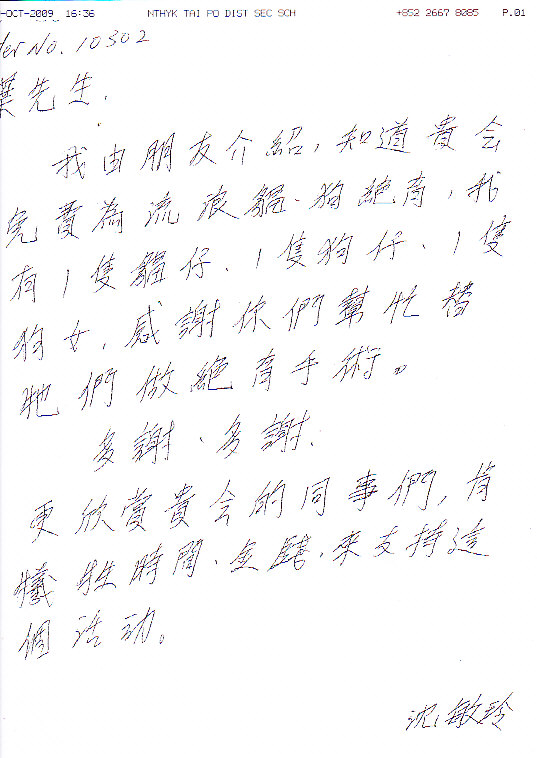 -OCT-2009 16:36 NTHYK TAI PO DIST SEC SCH +852 2667 8085 P.01
der No. 10302
葉先生.
我由朋友介紹,知道貴会
免費為流浪貓、狗絕育,我
有1隻貓仔、1隻狗仔、1隻
狗女,感謝你們幫忙替
牠們做絕育手術。
多謝、多謝.
更欣賞貴会的同事們,肯
犧牲時間、金錢,來支持這
個活动。
沈敏玲